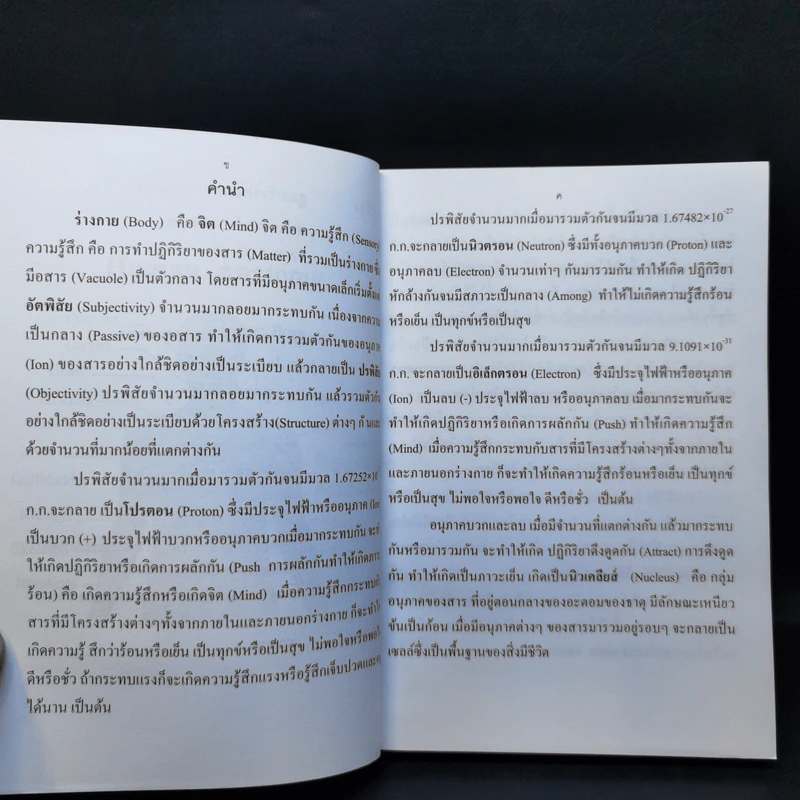 ข
คำนำ
ร่างกาย (Body) คือ จิต (Mind) จิต คือ ความรู้สึก (Sensory)
ความรู้สึก คือ การทำปฏิกิริยาของสาร (Matter) ที่รวมเป็นร่างกาย ซึ่ง
มีอสาร (Vacuole) เป็นตัวกลาง โดยสารที่มีอนุภาคขนาดเล็กเริ่มตั้งแต่
อัตพิสัย (Subjectivity) จำนวนมากลอยมากระทบกัน เนื่องจากความ
เป็นกลาง (Passive) ของอสาร ทำให้เกิดการรวมตัวกันของอนุภาค
(Ion) ของสารอย่างใกล้ชิดอย่างเป็นระเบียบ แล้วกลายเป็น ปรพิสัย
(Objectivity) ปรพิสัยจำนวนมากลอยมากระทบกัน แล้วรวมตัวกัน
อย่างใกล้ชิดอย่างเป็นระเบียบด้วยโครงสร้าง(Structure) ต่างๆ กันและ
ด้วยจำนวนที่มากน้อยที่แตกต่างกัน
ปรพิสัยจำนวนมากเมื่อมารวมตัวกันจนมีมวล 1.67252×10
ก.ก.จะกลาย เป็นโปรตอน (Proton) ซึ่งมีประจุไฟฟ้าหรืออนุภาค (Ion)
เป็นบวก (+) ประจุไฟฟ้าบวกหรืออนุภาคบวกเมื่อมากระทบกัน จะทำ
ให้เกิดปฏิกิริยาหรือเกิดการผลักกัน (Push การผลักกันทำให้เกิดภาวะ
ร้อน) คือ เกิดความรู้สึกหรือเกิดจิต (Mind) เมื่อความรู้สึกกระทบกับ
สารที่มีโครงสร้างต่างๆทั้งจากภายในและภายนอกร่างกาย ก็จะทำให้
เกิดความรู้ สึกว่าร้อนหรือเย็น เป็นทุกข์หรือเป็นสุข ไม่พอใจหรือพอใจ
ดีหรือชั่ว ถ้ากระทบแรงก็จะเกิดความรู้สึกแรงหรือรู้สึกเจ็บปวดและ
ได้นาน เป็นต้น
ค
ปรพิสัยจำนวนมากเมื่อมารวมตัวกันจนมีมวล 1.67482×10⁻²⁷
ก.ก.จะกลายเป็นนิวตรอน (Neutron) ซึ่งมีทั้งอนุภาคบวก (Proton) และ
อนุภาคลบ (Electron) จำนวนเท่าๆ กันมารวมกัน ทำให้เกิด ปฏิกิริยา
หักล้างกันจนมีสภาวะเป็นกลาง (Among) ทำให้ไม่เกิดความรู้สึกร้อน
หรือเย็น เป็นทุกข์หรือเป็นสุข
ปรพิสัยจำนวนมากเมื่อมารวมตัวกันจนมีมวล 9.1091×10⁻³¹
ก.ก. จะกลายเป็นอิเล็กตรอน (Electron) ซึ่งมีประจุไฟฟ้าหรืออนุภาค
(Ion) เป็นลบ (-) ประจุไฟฟ้าลบ หรืออนุภาคลบ เมื่อมากระทบกันจะ
ทำให้เกิดปฏิกิริยาหรือเกิดการผลักกัน (Push) ทำให้เกิดความรู้สึก
(Mind) เมื่อความรู้สึกกระทบกับสารที่มีโครงสร้างต่างๆทั้งจากภายใน
และภายนอกร่างกาย ก็จะทำให้เกิดความรู้สึกร้อนหรือเย็น เป็นทุกข์
หรือเป็นสุข ไม่พอใจหรือพอใจ ดีหรือชั่ว เป็นต้น
อนุภาคบวกและลบ เมื่อมีจำนวนที่แตกต่างกัน แล้วมากระทบ
กันหรือมารวมกัน จะทำให้เกิด ปฏิกิริยาดึงดูดกัน (Attract) การดึงดูด
กัน ทำให้เกิดเป็นภาวะเย็น เกิดเป็นนิวเคลียส์ (Nucleus) คือ กลุ่ม
อนุภาคของสาร ที่อยู่ตอนกลางของอะตอมของธาตุ มีลักษณะเหนียว
ข้นเป็นก้อน เมื่อมีอนุภาคต่างๆ ของสารมารวมอยู่รอบๆ จะกลายเป็น
เซลล์ซึ่งเป็นพื้นฐานของสิ่งมีชีวิต